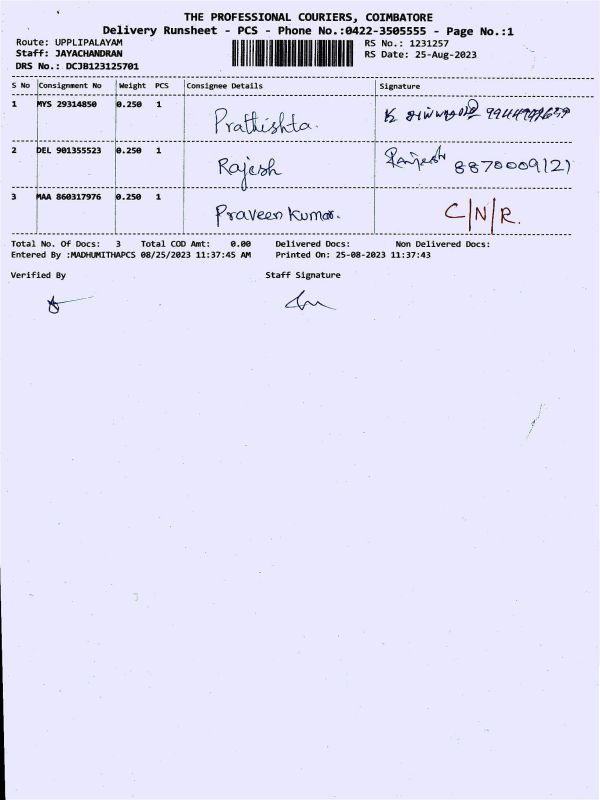 THE PROFESSIONAL COURIERS, COIMBATORE
Delivery Runsheet - PCS - Phone No.:0422-3505555 - Page No.:1
Route: UPPLIPALAYAM RS No.: 1231257
Staff: JAYACHANDRAN RS Date: 25-Aug-2023
DRS No.: DCJB123125701
S No Consignment No Weight PCS Consignee Details Signature
1 MYS 29314850 0.250 1 Prathishta.
2 DEL 901355523 0.250 1 Rajesh Ranjesh 8870009121
3 MAA 860317976 0.250 1 Praveen Kumar. C/N/R.
Total No. Of Docs: 3 Total COD Amt: 0.00 Delivered Docs: Non Delivered Docs:
Entered By :MADHUMITHAPCS 08/25/2023 11:37:45 AM Printed On: 25-08-2023 11:37:43
Verified By Staff Signature